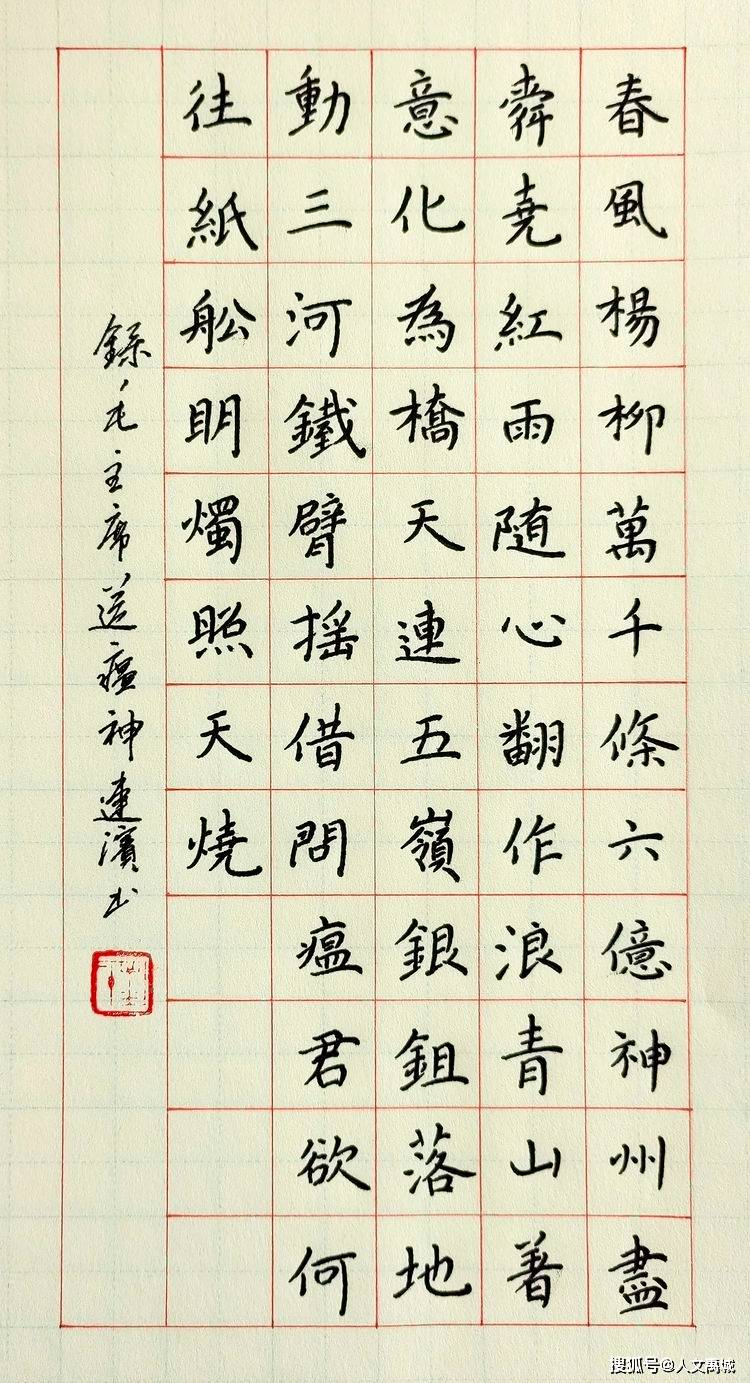 春風楊柳萬千條六億神州盡
舜堯紅雨随心翻作浪青山著
意化為橋天連五嶺銀鉏落地
動三河鐵臂摇借問瘟君欲何
往紙舩明燭照天燒
錄毛主席送瘟神連濱书
搜狐号@人文禹城